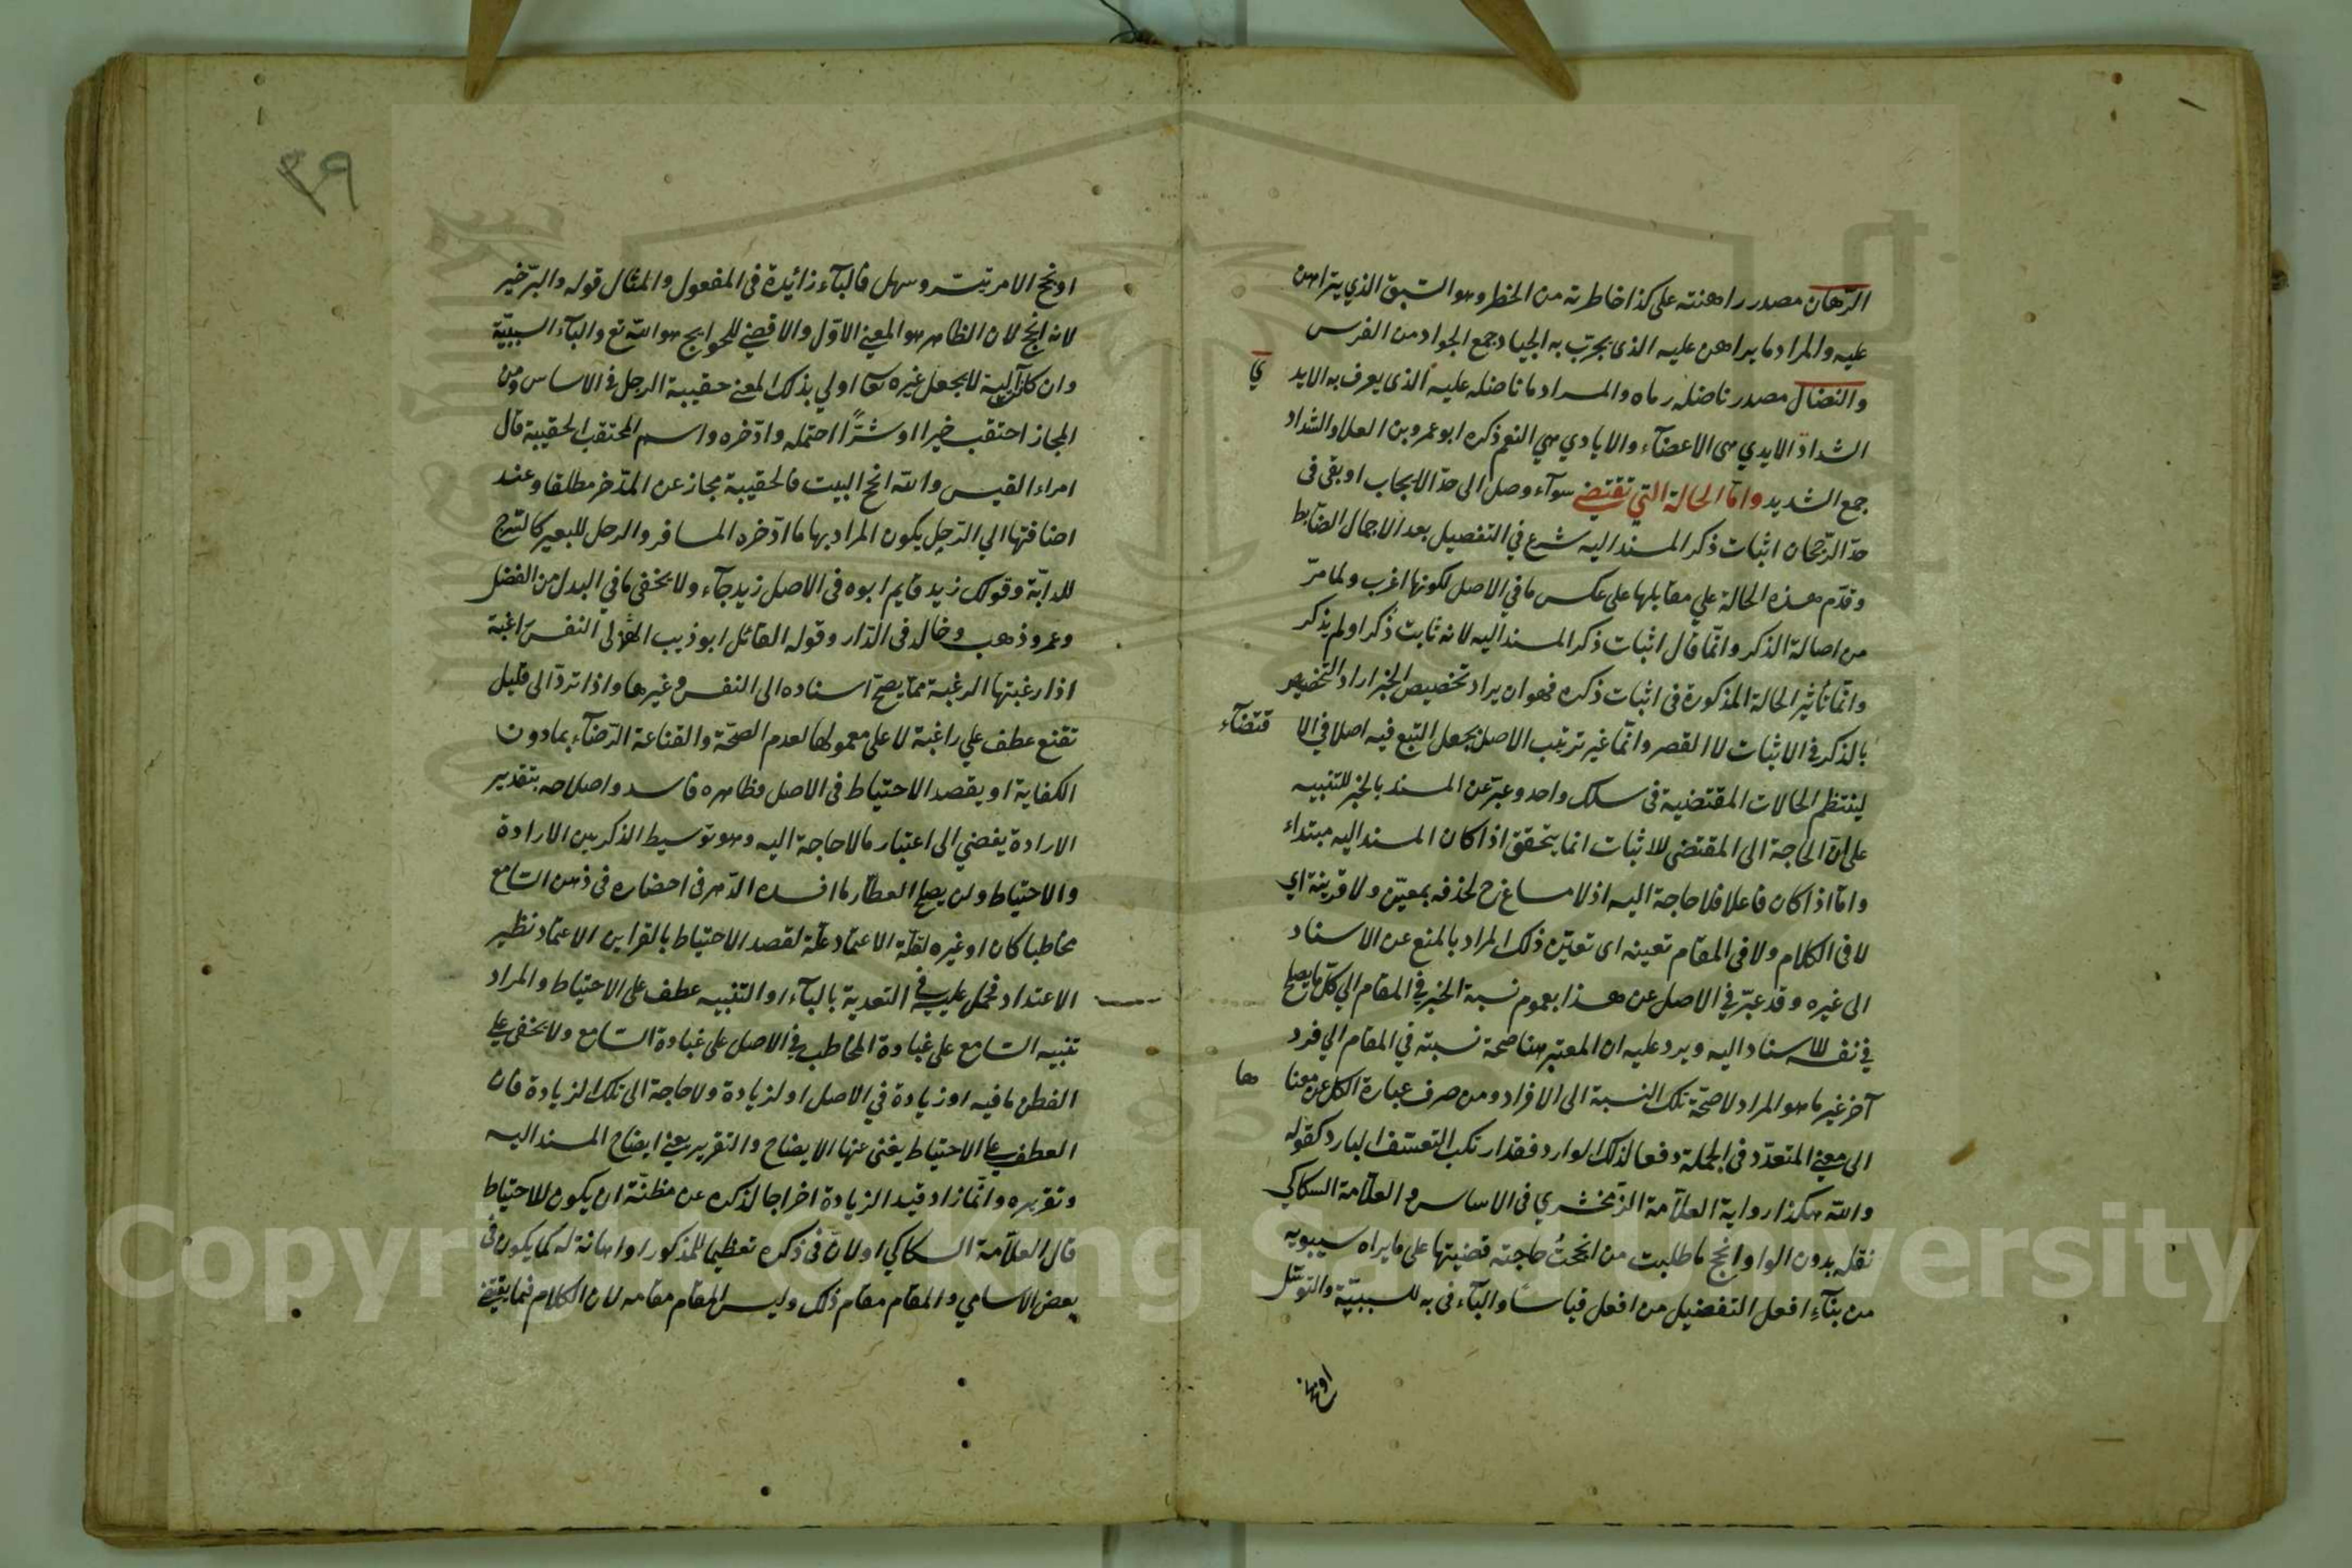 الرّهان مصدر راهنته على كذا خاطرته من الخطر وهو السّبق الذي يتراهن
عليه والمراد ما يراهن عليه الذى يجرّب به الجياد جمع الجواد من الفرس
والنضال مصدر ناضله رماه والمراد ما ناضله عليه الذى يعرف به الايد ي
الشداد الايدي هى الاعضآء والايادي هي النعم ذكره ابو عمرو بن العلا والشداد
جمع الشديد وامّا الحالة التي تقتضي سوآء وصل الى حدّ الايجاب او بقى فى
حدّ الرّجحان اثبات ذكر المسند اليه شرع في التفصيل بعد الاجمال الضابط
وقدّم هذه الحالة علي مقابلها على عكس ما في الاصل لكونها اغرب ولما مرّ
من اصالة الذكر وانّما قال اثبات ذكر المسند اليه لانه ثابت ذُكر او لم يذكر
وانّما تأثير الحالة المذكورة فى اثبات ذكره فهو ان يراد تخصيص الخبر اراد التخصيص
بالذكر في الاثبات لا القصر وانّما غير ترتيب الاصل بجعل التبع فيه اصلا في الا قتضآء
لينتظم الحالات المقتضية فى سلك واحد وعبّر عن المسند بالخبر للتنبيه
على انّ الحاجة الى المقتضى للاثبات انما يتحقق اذا كان المسند اليه مبتداء
وامّا اذا كان فاعلا فلا حاجة اليه اذ لا مساغ ح لحذفه بمعيّن ولا قرينة اي
لا فى الكلام ولا فى المقام تعينه اى تعيّن ذلك المراد بالمنع عن الاسناد
الى غيره وقد عبّر في الاصل عن هذا بعموم نسبة الخبر في المقام الي كلّ ما يصلح
في نفسه للاسناد اليه ويرد عليه ان المعتبر هنا صحة نسبته في المقام الي فرد
آخر غير ما هو المراد لا صحّة تلك النسبة الى الافراد ومن صرف عبارة الكل عن معنا ها
الى معنى المتعدّد فى الجملة دفعا لذلك الوارد فقد ارتكب التعسّف البارد كقوله
والله هكذا رواية العلاّمة الزّمخشري فى الاساس والعلاّمة السكاكي
نقله بدون الواو انجح ما طلبت من انجحتُ حاجته قضيتها على ما يراه سيبويه
من بنآءِ افعل التفضيل من افعل قياسًا والبآء فى به للسببيّة والتوسّل
او نجح
٣٩
او نجح الامر تيسّر وسهل فالبآء زائدة فى المفعول والمثال قوله والبرّ خير
لانه انجح لان الظاهر هو المعنى الاوّل والاقضى للحوايج هو الله تع والبآء السببيّة
وان كان آلية لا بجعل غيره تعا اولي بذلك المعنى حقيبة الرجل في الاساس ومن
المجاز احتقب خيرا او شرًّا احتمله وادّخره واسم المحتقب الحقيبة قال
امراء القيس والله انجح البيت فالحقيبة مجاز عن المدّخر مطلقا وعند
اضافتها الي الرّجل يكون المراد بها ما ادّخره المسافر والرحل للبعير كالسّرج
للدابّة وقولك زيد قايم ابوه فى الاصل زيد جآء ولا يخفى ما في البدل من الفضل
وعمرو ذهب وخالد فى الدّار وقوله القائل ابو ذيب الهذلى النفس راغبة
اذا رغبتها الرغبة ممّا يصحّ اسناده الى النفس وغيرها واذا تردّ الى قليل
تقنع عطف علي راغبة لا على معمولها لعدم الصحّة والقناعة الرّضآء بما دون
الكفاية او يقصد الاحتياط فى الاصل فظاهره فاسد واصلاحه بتقدير
الارادة يفضي الى اعتبار ما لا حاجة اليه وهو توسيط الذكر بين الارادة
والاحتياط ولن يصلح العطّار ما افسده الدّهر فى احضاره فى ذهن السّامع
مخاطبا كان او غيره لقلّة الاعتماد علّة لقصد الاحتياط بالقراين الاعتماد نظير
الاعتداد فحمل عليه في التعدية بالبآء او التنبيه عطف على الاحتياط والمراد
تنبيه السّامع على غباوة المخاطب في الاصل على غباوة السّامع ولا يخفى على
الفطن ما فيه او زيادة في الاصل او لزيادة ولا حاجة الى تلك الزيادة فان
العطف على الاحتياط يغنى عنها الايضاح والتقرير يعنى ايضاح المسند اليه
وتقريره وانّما زاد قيد الزيادة اخراجا لذكره عن مظنّة ان يكون للاحتياط
قال العلاّمة السكاكي او لانّ فى ذكره تعظيما للمذكور او اهانة له كما يكون فى
بعض الاسامي والمقام مقام ذلك وليس المقام مقامه لان الكلام فيما يقتضى